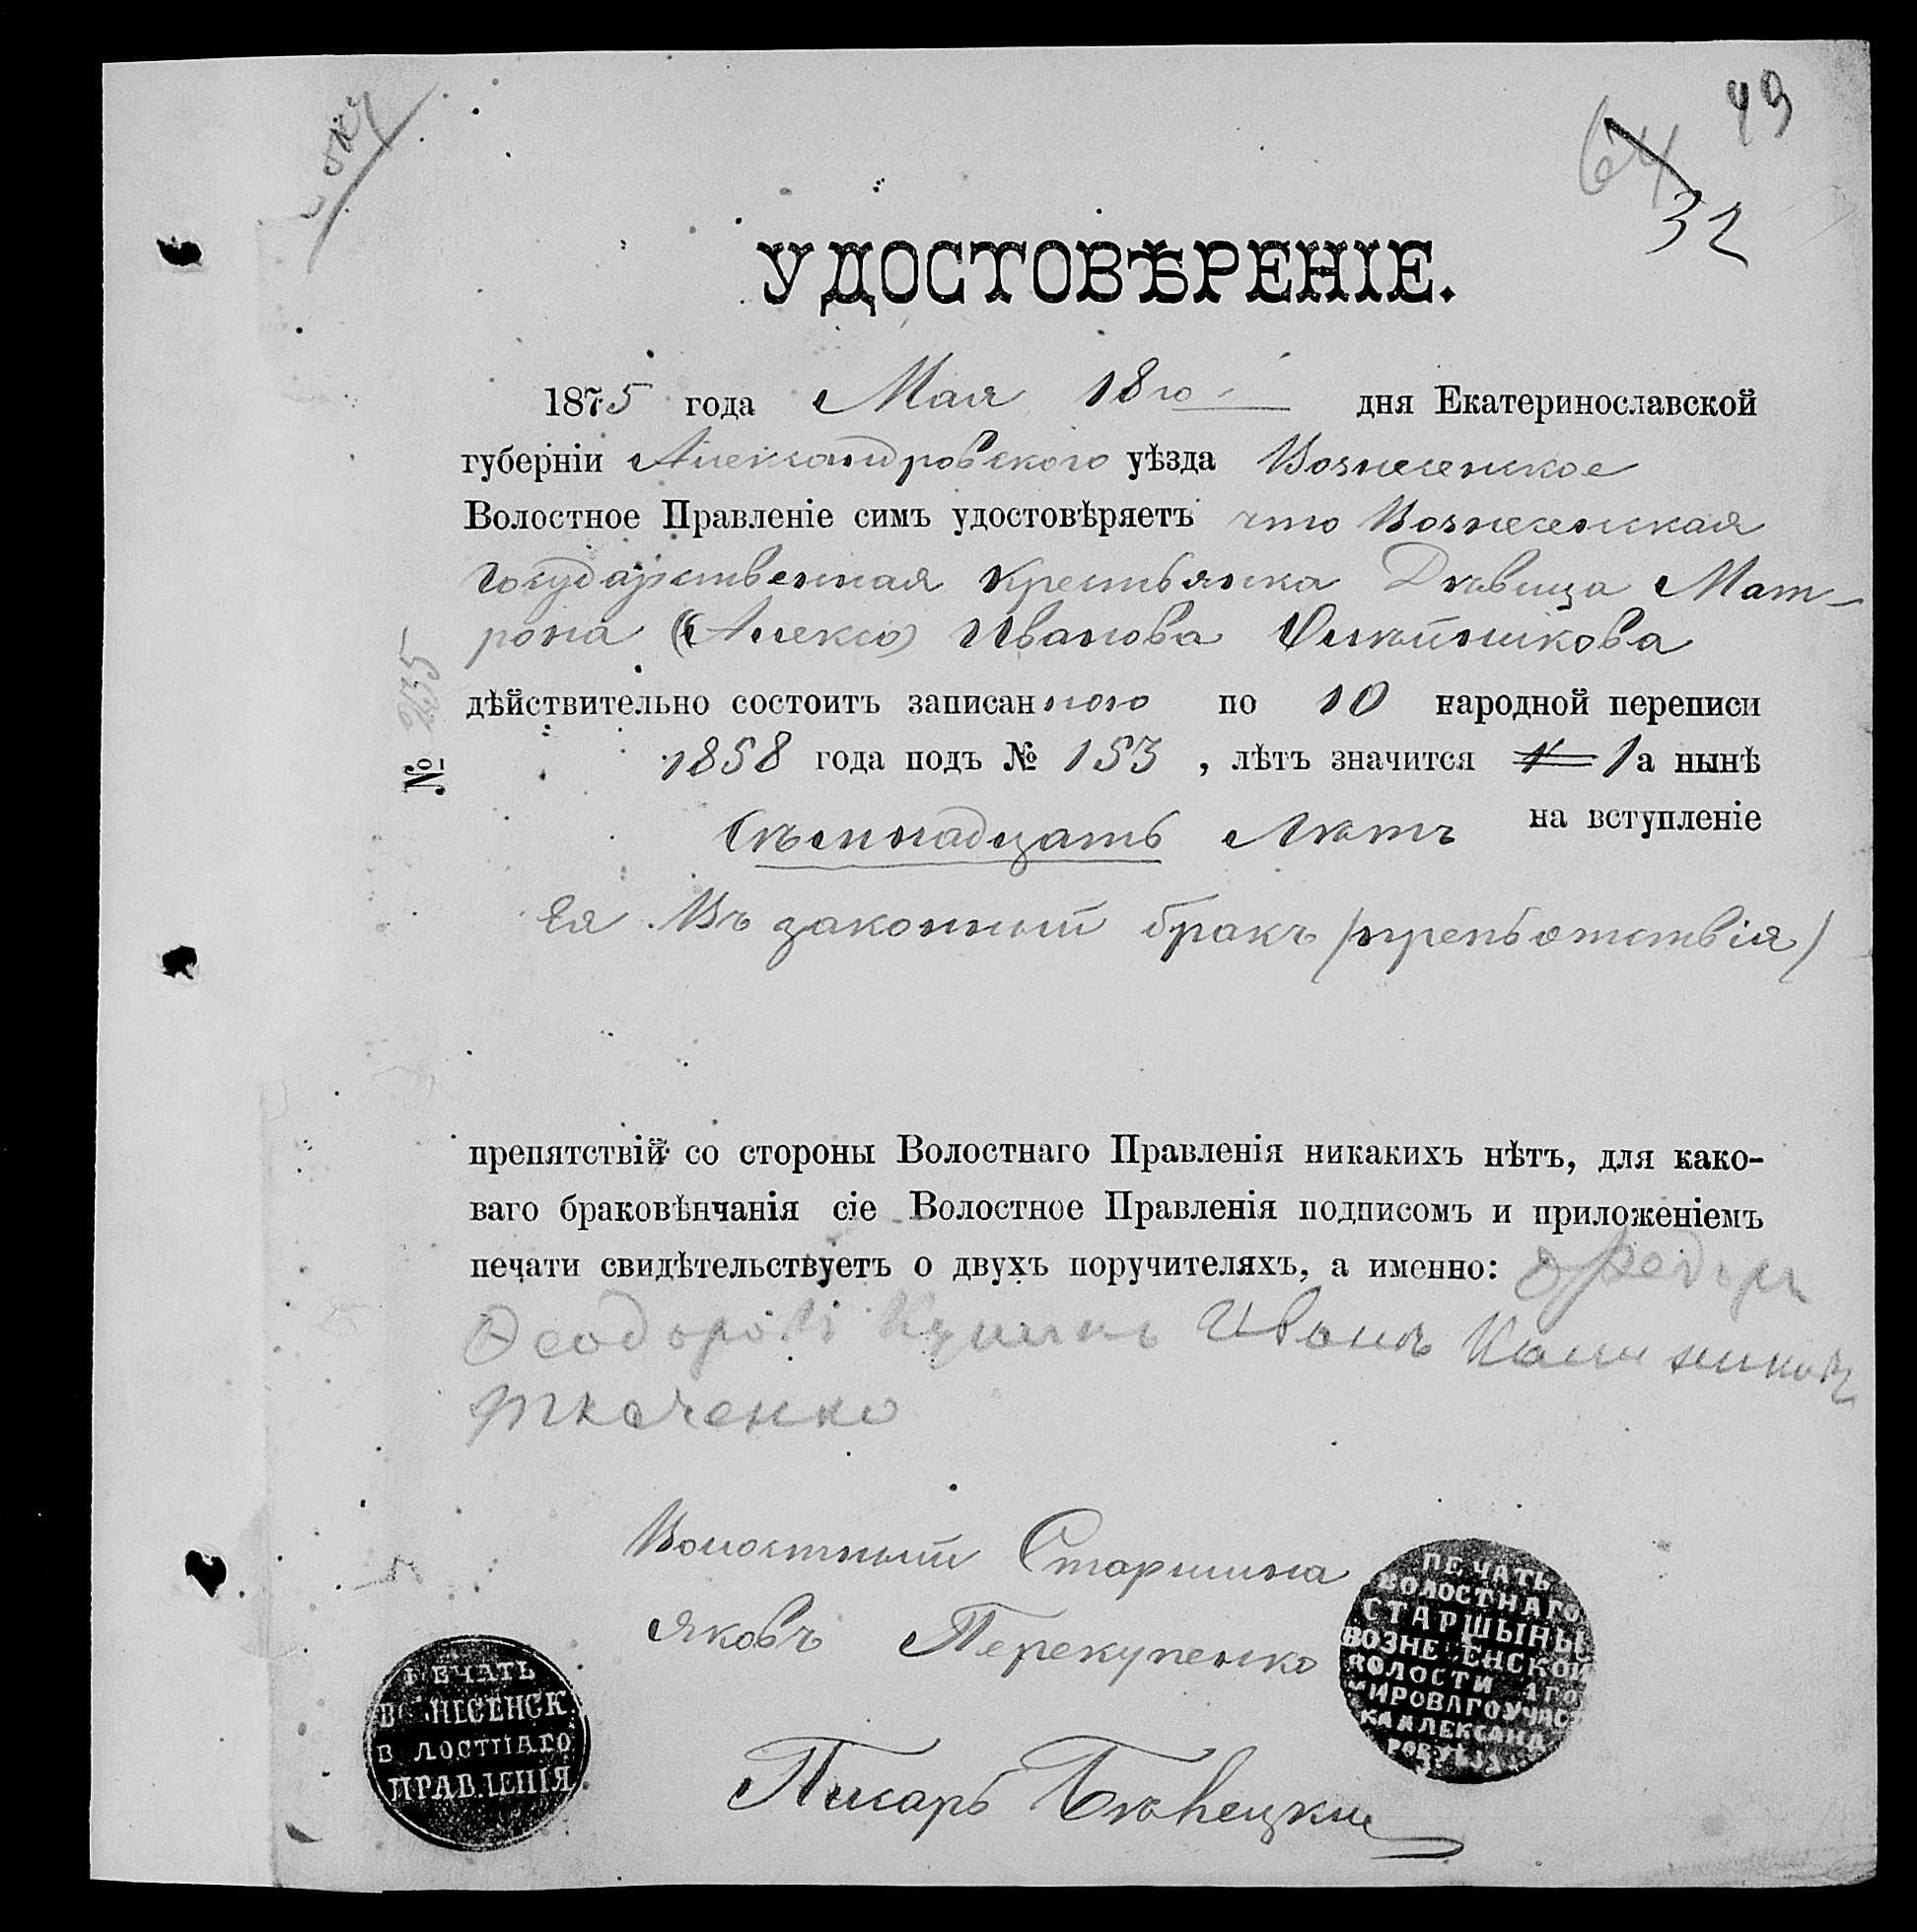 49
64
32
УДОСТОВѢРЕНІЕ.
1875 года Мая 18го дня Екатеринославской
губерніи Александровского уѣзда Вознесенское
Волостное Правленіе симъ удостовѣряетъ что Вознесенская
Государственная крестьянка Дѣвица Мат-
рона (Алексо) Иванова
дѣйствительно состоитъ записанною по 10 народной переписи
1858 года подъ № 153, лѣтъ значится 1 а нынѣ
Сѣмнадцать Лѣтъ на вступленіе
Ея Въ законный бракъ /препьотствія/
№ 235
препятствій со стороны Волостнаго Правленія никакихъ нѣтъ, для како-
ваго браковѣнчанія сіе Волостное Правленія подписомъ и приложеніемъ
печати свидѣтельствуетъ о двухъ поручителяхъ, а именно: Федоръ
Иванъ
ткаченко
Волостный Старшина
Яковъ Перекупенко
ПЕЧАТЬ
ВОЛОСТНАГО
СТАРШЫНЫ
ВОЗНЕСЕНСКОЙ
ВОЛОСТИ 1ГО
МИРОВАГО УЧАС
КА АЛЕКСАНД
РОВ УѢЗ
ПЕЧАТЬ
ВОЗНЕСЕНСК
ВОЛОСТНАГО
ПРАВЛЕНІЯ
Писарь